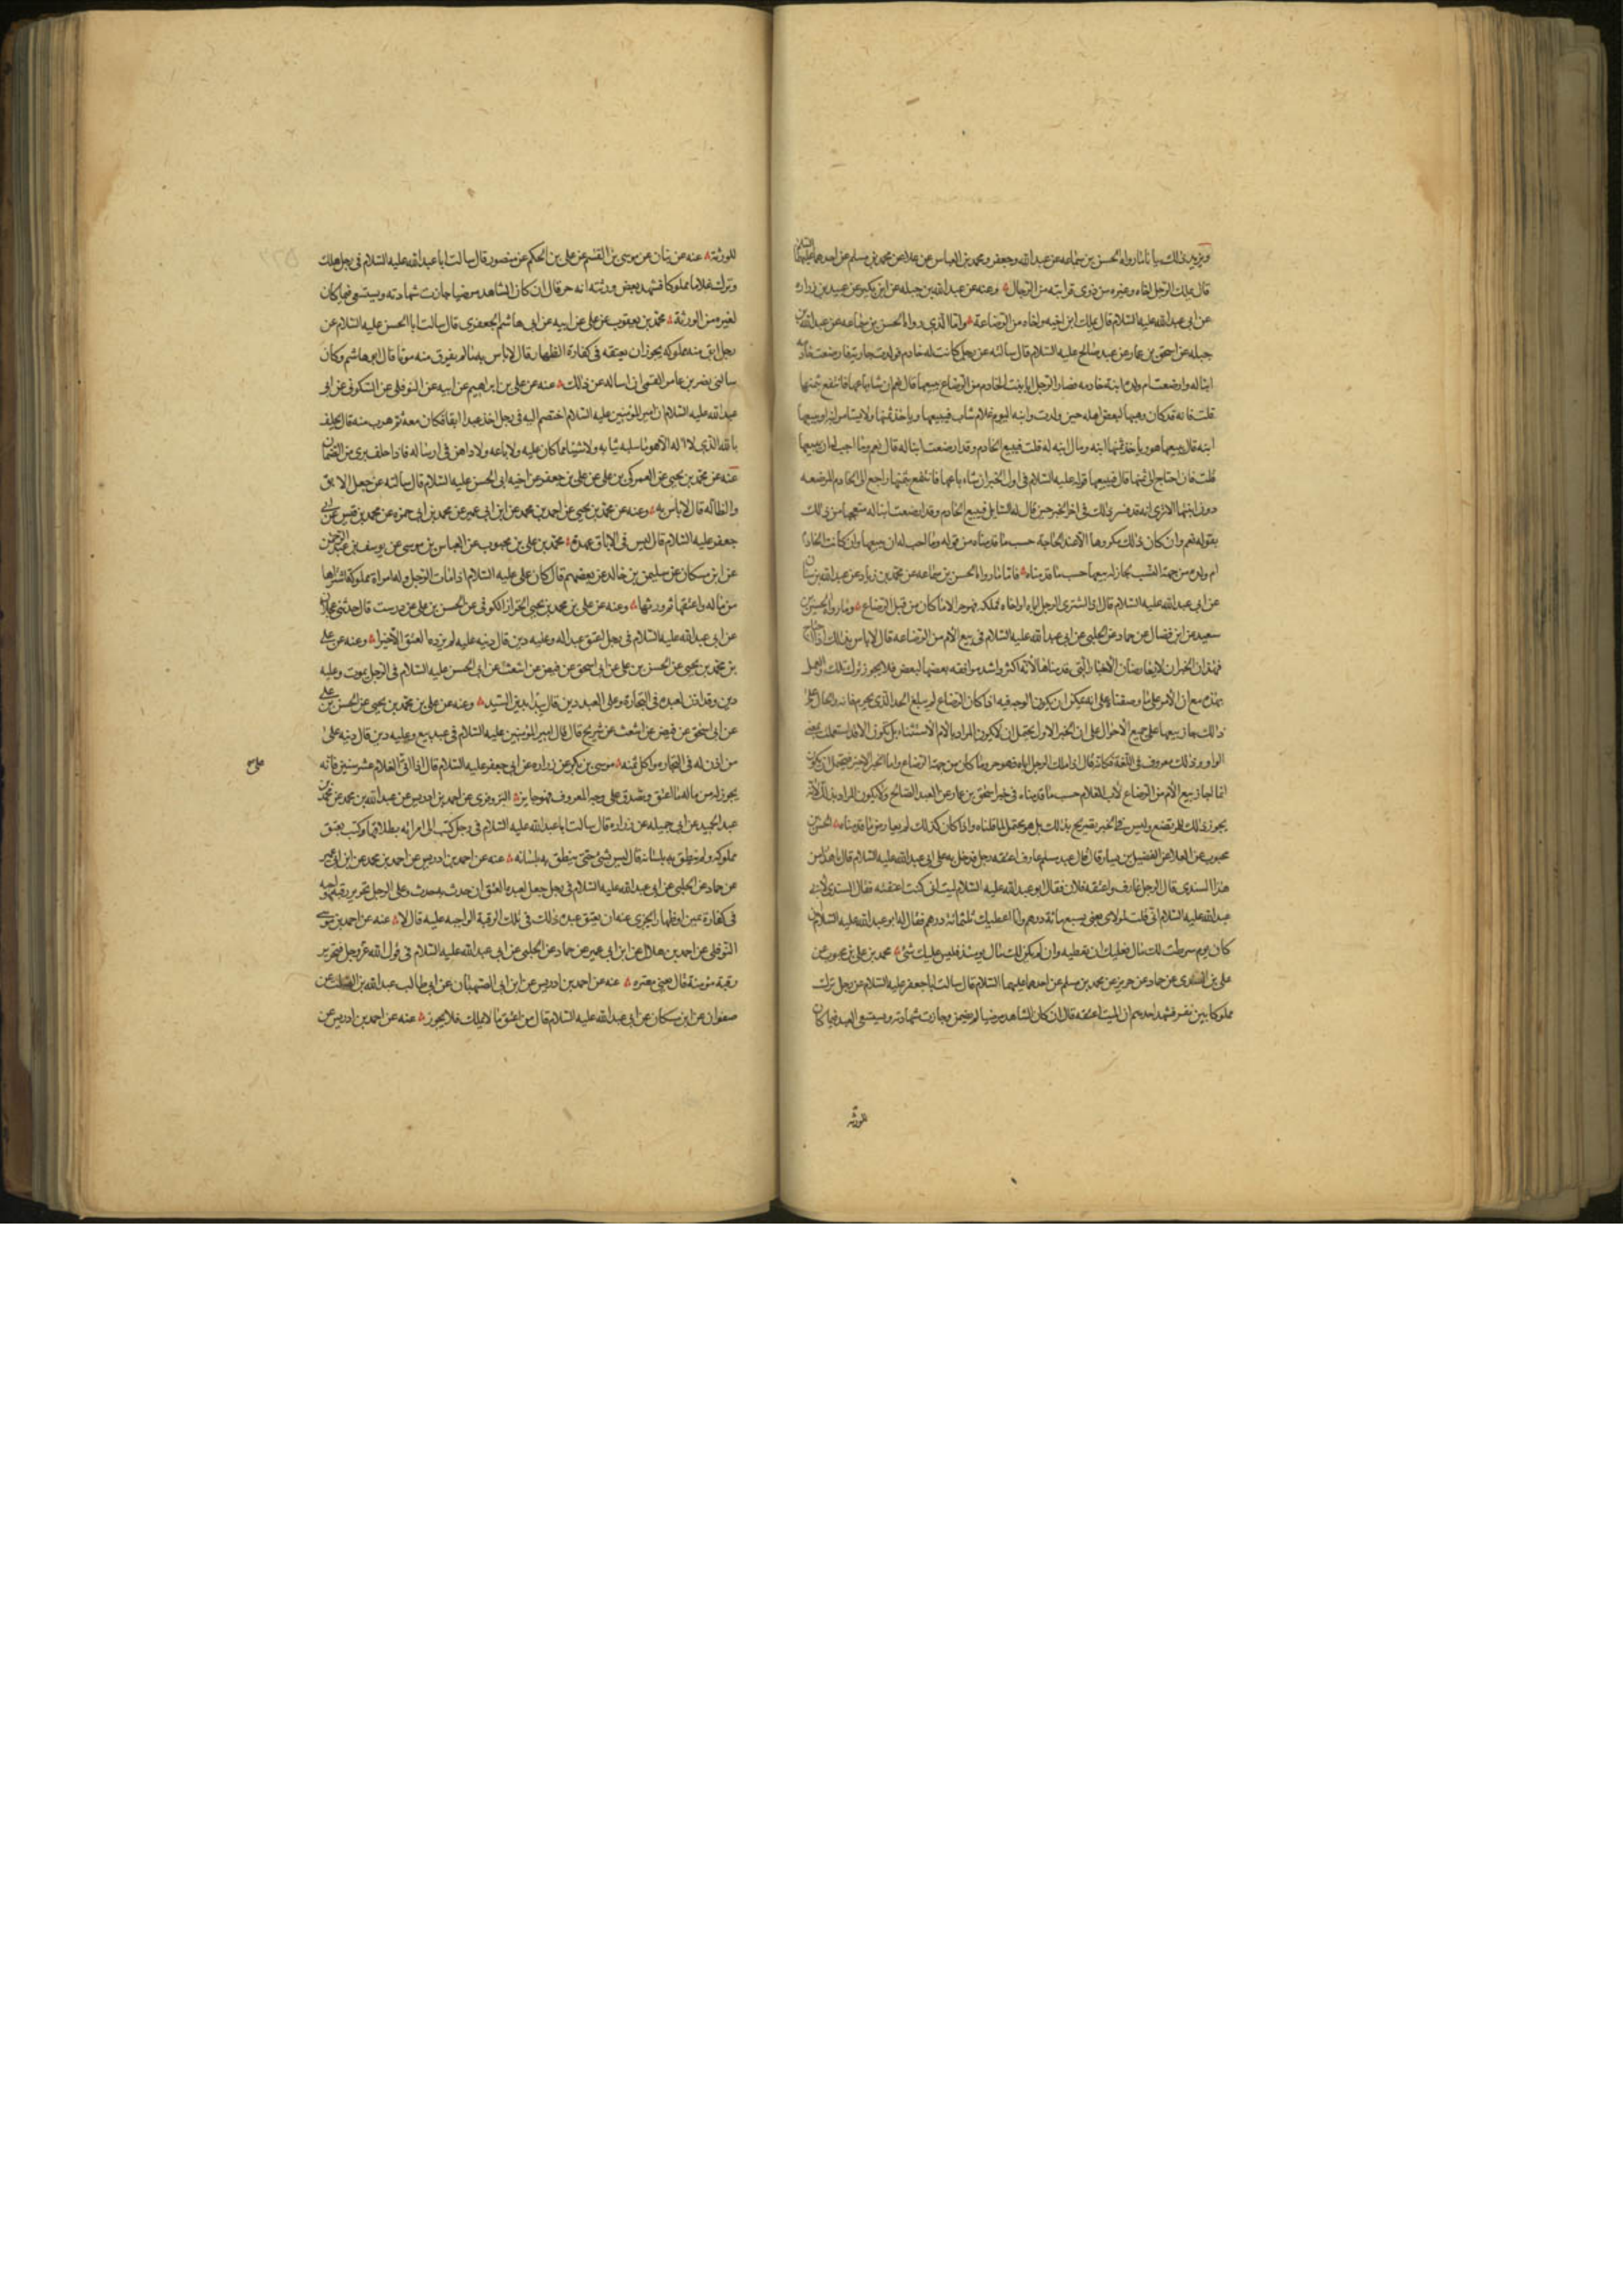 ويزيد ذلك بيانا ما رواه الحسن بن سماعه عن عبد الله وجعفر ومحمد بن العباس عن علا عن محمد بن مسلم عن احدهما عليهما السلام
قال يملك الرجل اخاه وغيره من ذوى قرابته من الرجال وعنه عن عبد الله بن جبله عن ابن بكير عن عبيد بن زراره
عن ابى عبد الله عليه السلام قال يملك ابن اخيه واخاه من الرضاعة واما الذي رواه الحسن بن سماعه عن عبد الله بن
جبله عن اسحق بن عمار عن عبد صالح عليه السلام قال سالته عن رجل كانت له خادم فولدت جارية فارضعت خادمه
ابنا له وارضعت ام ولده ابنة خادمه فصار الرجل ابا بنت الخادم من الرضاع يبيعها قال نعم ان شا باعها فانتفع بثمنها
قلت فانه قد كان وهبها لبعض اهله حين ولدت وابنه اليوم غلام شاب فيبيعها وياخذ ثمنها ولا يستامر ابنه او يبيعها
ابنه قال يبيعها هو وياخذ ثمنها ابنه ومال ابنه له قلت فيبيع الخادم وقد ارضعت ابنا له قال نعم وما احب له ان يبيعها
قلت فان احتاج الى ثمنها قال فيبيعها قوله عليه السلام فى اول الخبر ان شاء باعها فانتفع بثمنها راجع الى الخادم المرضعه
دون ابنتها الا ترى انه قد فسر ذلك فى اخر الخبر حين قال له السايل فيبيع الخادم وقد ارضعت ابنا له متعجبا من ذلك
بقوله نعم وان كان ذلك مكروها الا عند الحاجة حسب ما قدمناه من قوله وما احب له ان يبيعها ولو كانت الخادم
ام ولده من جهة النسب لجاز له بيعها حسب ما قدمناه فاما ما رواه الحسن بن سماعه عن محمد بن زياد عن عبد الله بن سنان
عن ابى عبد الله عليه السلام قال اذا اشترى الرجل اباه او اخاه فملكه فهو حر الا ما كان من قبل الرضاع وما رواه الحسين بن
سعيد عن ابن فضال عن حماد عن الحلبى عن ابى عبد الله عليه السلام فى بيع الام من الرضاعه قال لا باس بذلك اذا احتاج
فهذان الخبران لا يعارضان الاخبار التى قدمناها لانها اكثر واشد موافقه بعضها لبعض فلا يجوز ترك تلك والعمل
بهذه مع ان الامر على ما وصفناه على انه يمكن ان يكون الوجه فيه اذا كان الرضاع لم يبلغ الحد الذي يحرم فانه والحال على
ذلك جاز بيعها على جميع الاحوال على ان الخبر الاول يحتمل ان لا يكون المراد بالا الاستثناء بل تكون الا قد استعملت بمعنى
الواو وذلك معروف فى اللغة فكانه قال اذا ملك الرجل اباه فهو حر وما كان من جهة الرضاع واما الخبر الاخير فيحتمل ان يكون
انما اجاز بيع الام من الرضاع لاب الغلام حسب ما قدمناه فى خبر اسحق بن عمار عن العبد الصالح ولا يكون المراد بذلك انه
يجوز ذلك للمرتضع وليس فى الخبر تصريح بذلك بل هو يحتمل لما قلناه واذا كان كذلك لم يعارض ما قدمناه الحسن بن
محبوب عن العلا عن الفضيل بن يسار قال قال عبد مسلم عارف اعتقه رجل فدخل به على ابى عبد الله عليه السلام قال يا هذا من
هذا السندى قال الرجل عارف واعتقه فلان فقال ابو عبد الله عليه السلام ليت انى كنت اعتقته فقال السندى لابى
عبد الله عليه السلام انى قلت لمولاى بعنى بسبع مائة درهم وانا اعطيك ثلثمائة درهم فقال له ابو عبد الله عليه السلام ان
كان يوم شرطت لك مال فعليك ان تعطيه وان لم يكن لك مال يومئذ فليس عليك شئ محمد بن على بن محبوب عن
على بن السندى عن حماد عن حريز عن محمد بن مسلم عن احدهما عليهما السلام قال سالت ابا جعفر عليه السلام عن رجل ترك
مملوكا بين نفر فشهد احدهم ان الميت اعتقه قال ان كان الشاهد مرضيا لم يضمن وجازت شهادته ويستسعى العبد فيما كان
للورثة
للورثة عنه عن بنان عن موسى بن القسم عن على بن الحكم عن منصور قال سالت ابا عبد الله عليه السلام فى رجل هلك
وترك غلاما مملوكا فشهد بعض ورثته انه حر قال ان كان الشاهد مرضيا جازت شهادته ويستسعى فيما كان
لغيره من الورثة محمد بن يعقوب عن على عن ابيه عن ابى هاشم الجعفرى قال سالت ابا الحسن عليه السلام عن
رجل ابق منه مملوكه يجوز ان يعتقه فى كفارة الظهار قال لا باس به ما لم يعرف منه موتا قال ابو هاشم وكان
سالنى نصر بن عامر القمى ان اساله عن ذلك عنه عن على بن ابراهيم عن ابيه عن النوفلى عن السكونى عن ابى
عبد الله عليه السلام ان امير المؤمنين عليه السلام اختصم اليه فى رجل اخذ عبدا ابقا فكان معه ثم هرب منه قال يحلف
بالله الذى لا اله الا هو ما سلبه ثيابه ولا شيئا مما كان عليه ولا باعه ولا داهن فى ارساله فاذا حلف برئ من الضمان
عنه عن محمد بن يحيى عن العمركى بن على عن على بن جعفر عن اخيه ابى الحسن عليه السلام قال سالته عن جعل الابق
والضالة قال لا باس به وعنه عن محمد بن يحيى عن احمد بن محمد عن ابن ابى عمير عن محمد بن ابى حمزه عن محمد بن قيس عن ابى
جعفر عليه السلام قال ليس فى الاباق عهدة محمد بن على بن محبوب عن العباس بن موسى عن يوسف بن عبد الرحمن
عن ابن مسكان عن سليمن بن خالد عن بعضهم قال كان على عليه السلام اذا مات الرجل وله امراة مملوكة اشتراها
من ماله واعتقها ثم ورثها وعنه عن على بن محمد بن يحيى الخزاز الكوفى عن الحسن بن على عن درست قال حدثنى عجلان
عن ابى عبد الله عليه السلام فى رجل اعتق عبدا له وعليه دين قال دينه عليه لم يزده العتق الا خيرا وعنه عن على
بن محمد بن يحيى عن الحسن بن على عن ابى اسحق عن فيض عن اشعث عن ابى الحسن عليه السلام فى الرجل يموت وعليه
دين وقد اذن لعبده فى التجارة وعلى العبد دين قال يبدا بدين السيد وعنه عن على بن محمد بن يحيى عن الحسن بن على
عن ابى اسحق عن فيض عن اشعث عن شريح قال قال امير المؤمنين عليه السلام فى عبد بيع وعليه دين قال دينه على
من اذن له فى التجاره واكل ثمنه موسى بن بكر عن زراره عن ابى جعفر عليه السلام قال اذا اتى الغلام عشر سنين فانه
يجوز له من ماله ما اعتق وتصدق على وجه المعروف فهو جايز البزوفرى عن احمد بن ادريس عن عبد الله بن محمد عن محمد بن
عبد الحميد عن ابى جميله عن زراره قال سالت ابا عبد الله عليه السلام فى رجل كتب الى امراته بطلاقها وكتب بعتق
مملوكه ولم ينطق به بلسانه قال ليس شئ حتى ينطق به بلسانه عنه عن احمد بن ادريس عن احمد بن محمد عن ابن ابى عمير
عن حماد عن الحلبى عن ابى عبد الله عليه السلام فى رجل جعل لعبده العتق ان حدث به حدث وعلى الرجل تحرير رقبة واجبه
فى كفارة يمين او ظهار ايجزى عنه ان يعتق عبده ذلك فى تلك الرقبة الواجبه عليه قال لا عنه عن احمد بن موسى
النوفلى عن احمد بن هلال عن ابن ابى عمير عن حماد عن الحلبى عن ابى عبد الله عليه السلام فى قول الله عز وجل فتحرير
رقبة مؤمنة قال يعنى مقره عنه عن احمد بن ادريس عن ابن ابى الصهبان عن ابى طالب عبد الله بن الصلت عن
صفوان عن ابن مسكان عن ابى عبد الله عليه السلام قال من اعتق ما لا يملك فلا يجوز عنه عن احمد بن ادريس عن